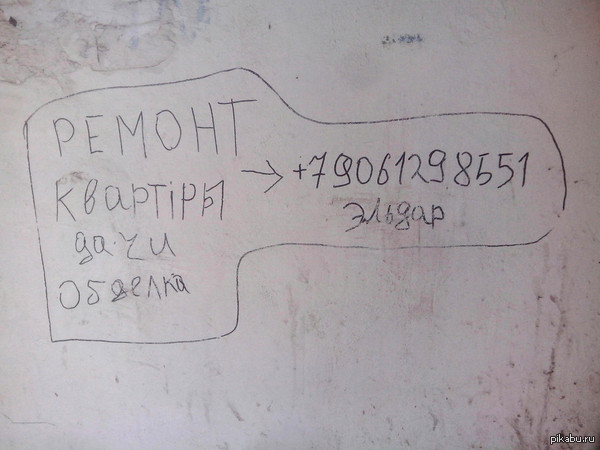 РЕМОНТ
КВАРТІРЫ
дачи
Обделка
→ +79061298551
Эльдар
pikabu.ru